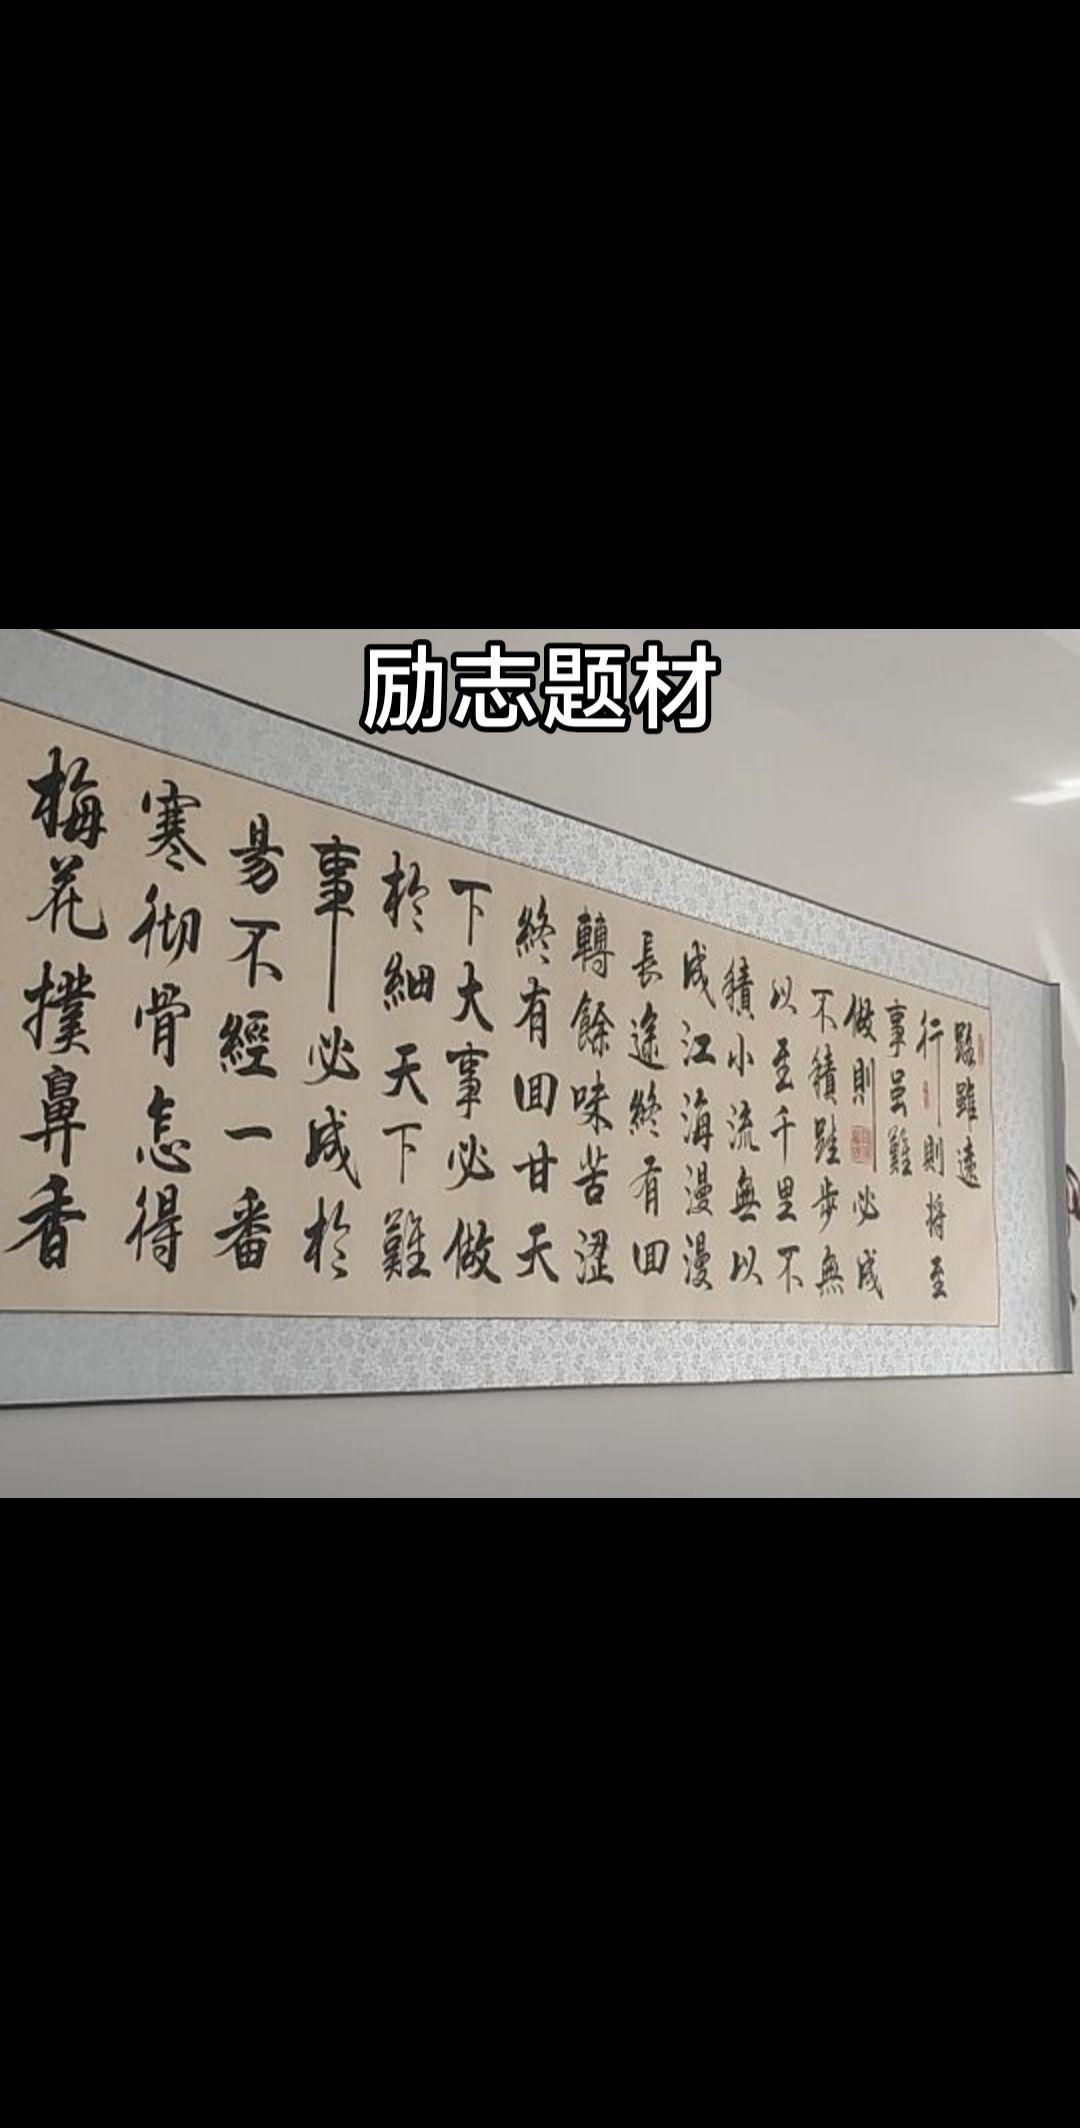 励志题材
路雖遠
行則將至
事虽難
做則必成
不積跬步無
以至千里不
積小流無以
成江海漫漫
長途終有回
轉餘味苦澀
終有回甘天
下大事必做
於細天下難
事必成於
易不經一番
寒彻骨怎得
梅花撲鼻香